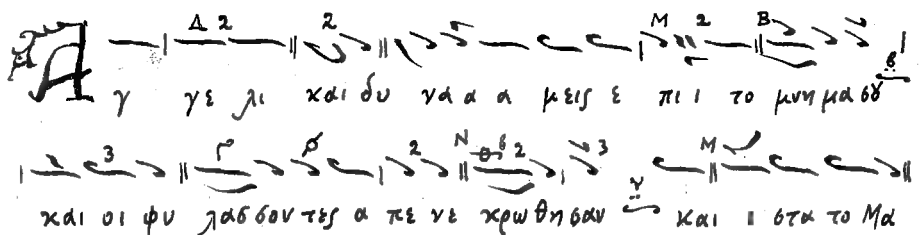 Αγ γε λι και δυ να α α μεις ε πι ι το μνη μα σȣ
και οι φυ λασ σον τες α πε νε κρω θη σαν και ι στα το Μα